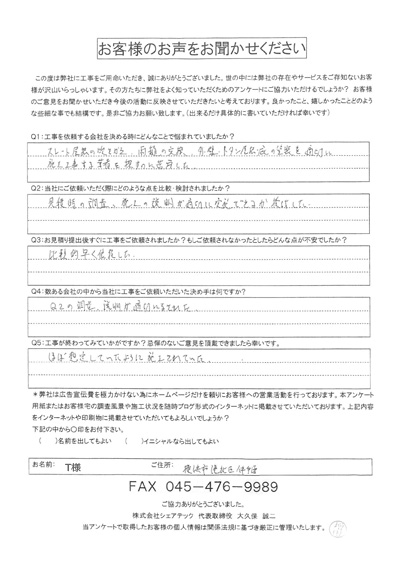 お客様のお声をお聞かせください
この度は弊社に工事をご用命いただき、誠にありがとうございました。世の中には弊社の存在やサービスをご存知ないお客
様が沢山いらっしゃいます。その方たちに弊社をよく知っていただくためのアンケートにご協力いただけるでしょうか？ お客
様のご意見をお聞かせいただき今後の活動に反映させていただきたいと考えております。良かったこと、嬉しかったことどのよう
な些細な事でも結構です。是非ご協力お願い致します。（出来るだけ具体的に書いていただければ幸いです）
Q1：工事を依頼する会社を決める時にどんなことで悩まれていましたか？
スレート屋根の吹きかえ、雨樋の交換、外壁トタン屋根の塗装を適切に
施工出来る業者を探すのに苦労した
Q2：当社にご依頼いただく際にどのような点を比較・検討されましたか？
見積時の調査、施工の説明が適切に実施できるか検討した
Q3：お見積り提出後すぐに工事をご依頼されましたか？もしご依頼されなかったとしたらどんな点が不安でしたか？
比較的早く依頼した
Q4：数ある会社の中から当社に工事をご依頼いただいた決め手は何ですか？
Q2の調査、説明が適切になされた
Q5：工事が終わってみていかがですか？忌憚のないご意見を頂戴できましたら幸いです。
ほぼ想定していたように施工されていた。
＊弊社は広告宣伝費を極力かけない為にホームページだけを頼りにお客様への営業活動を行っております。本アンケート
用紙またはお客様宅の調査風景や施工状況を随時ブログ形式のインターネットに掲載させていただいております。上記内容
をインターネットや印刷物に掲載させていただいてもよろしいでしょうか？
下記の中から〇印をお付下さい。
（　）名前を出してもよい　（　）イニシャルなら出してもよい
お名前： T様　ご住所： 横浜市港北区
FAX 045-476-9989
ご協力ありがとうございました。
株式会社シェアテック 代表取締役 大久保 誠二
当アンケートで取得したお客様の個人情報は関係法規に基づき厳正に管理いたします。